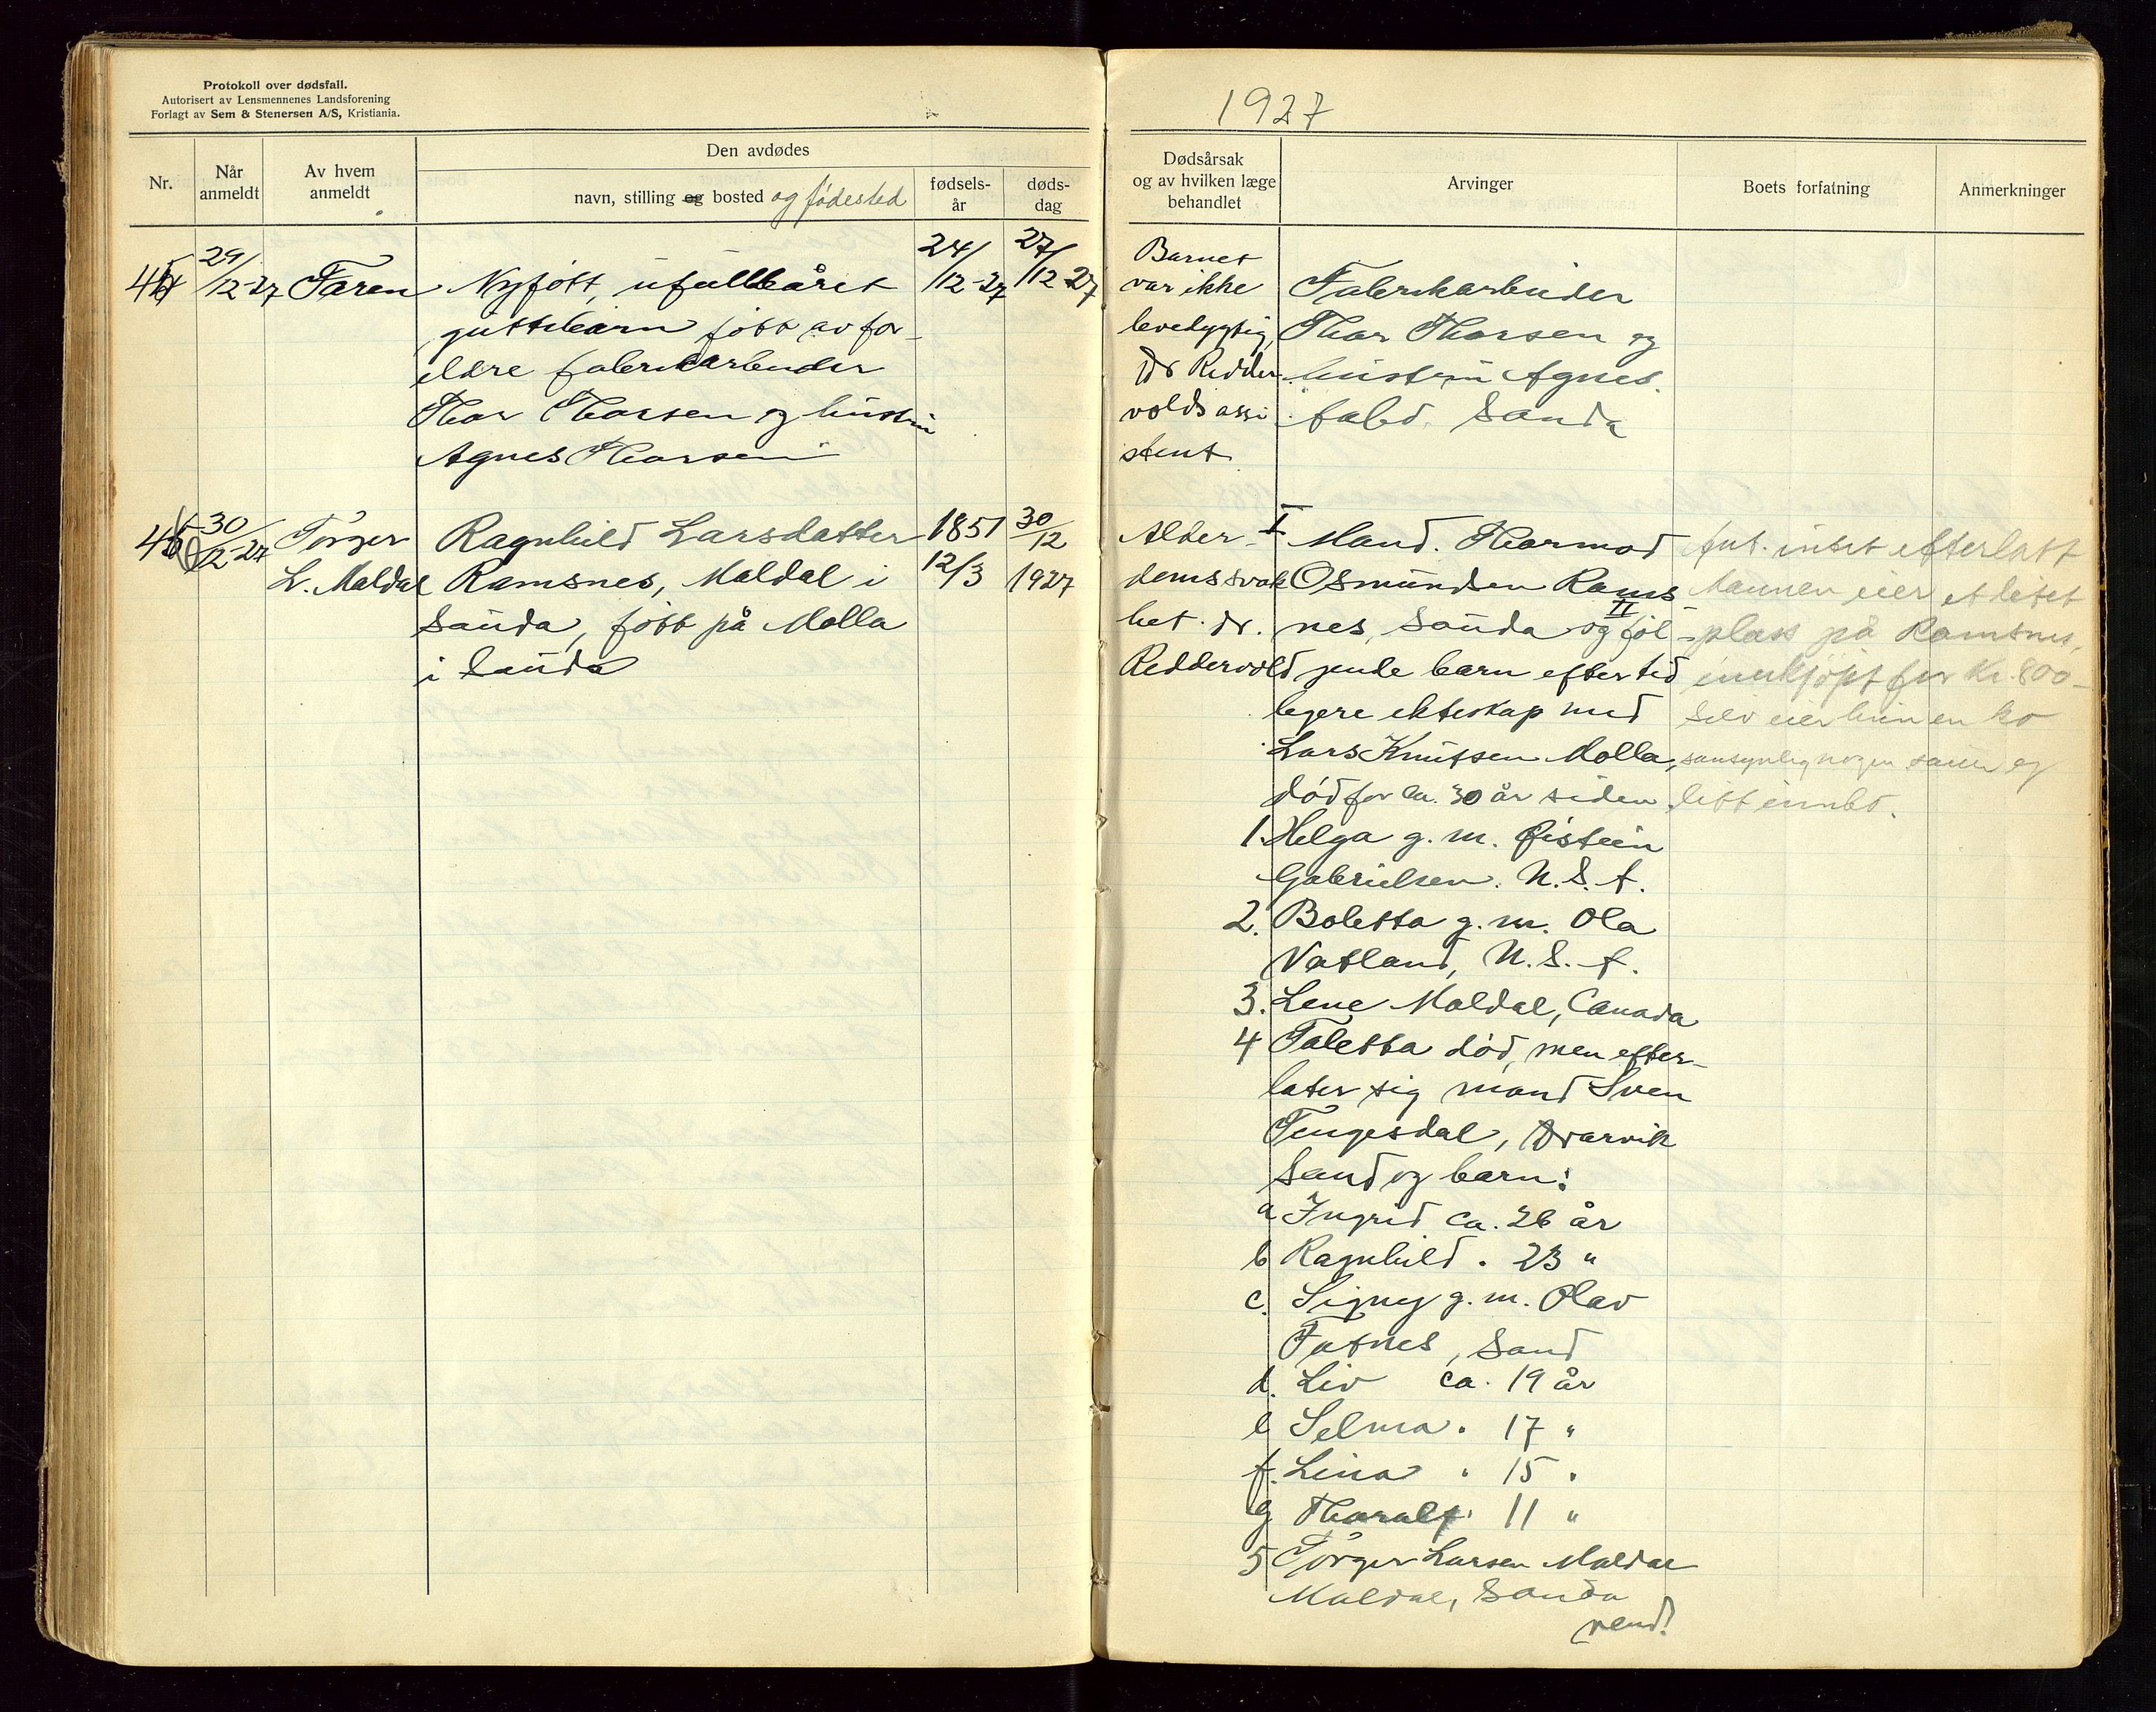 Protokoll over dødsfall.
Autorisert av Lensmennenes Landsforening
Forlagt av Sem & Stenersen A/S, Kristiania.
Nr.
Når anmeldt
Av hvem anmeldt
Den avdødes
navn, stilling og bosted og fødested
fødsels-år
døds-dag
45
29/12-27
Faren
Nyfött, ufullbåret
guttebarn född av for-
eldre fabrikarbeider
Thor Thorsen og hustru
Agnes Thorsen
24/12-27
27/12-27
46
30/12-27
Törger
L. Maldal
Ragnhild Larsdatter
Ramsnes, Maldal i
Sauda, född på Molla
i Sauda
1851
12/3
30/12
1927
1927
Dødsårsak
og av hvilken læge
behandlet
Arvinger
Boets forfatning
Anmerkninger
Barnet
var ikke
levedygtig,
Dr Ridder
volds assi
stent
Fabrikarbeider
Thor Thorsen og
hustru Agnes.
Sauda
Alder
domssvak
het. dr.
Riddervold
I Mand. Thormod
Osmundsen Rams
nes, Sauda og II föl-
gende barn efter tid
ligere ekteskap med
Lars Knutsen Molla,
död for ca. 30 år siden.
1. Helga g. m. Øistein
Gabrielsen. N. S. f.
2. Boletta g. m. Ola
Vatland, N. S. f.
3. Lene Maldal, Canada
4 Taletta död, men efter-
later sig mand Sven
Tengesdal, Dvarvik
Sand og barn:
a Ingrid ca. 26 år
b Ragnhild . 23 "
c. Signy g. m. Olav
Fatnes, Sand
d. Liv ca. 19 år
e Selma . 17 "
f. Lina . 15 "
g Tharalf . 11 "
5 Törger Larsen Maldal
Maldal, Sauda
vend!
intet efterlatt
Mannen eier et litet
plass på Ramsnes,
innkjöpt for Kr. 800-
Selv eier hun en ko
sansynlig nogen sauer og
litt innbo.